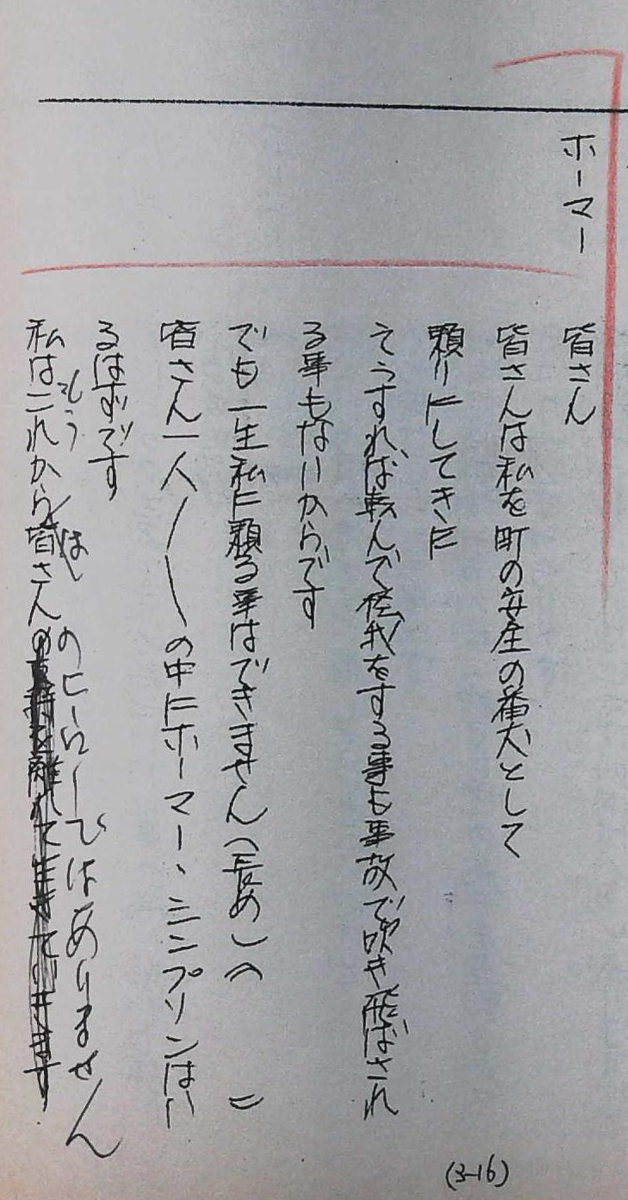 ホーマー
皆さん
皆さんは私を町の安全の番犬として
頼りにしてきた
そうすれば転んで怪我をする事も事故で吹き飛ばされ
る事もないからです
でも一生私に頼る事はできません（長め）（　　）
皆さん一人／＼の中にホーマー、シンプソンはい
るはずです
もう　は　のヒーローではありません
私はこれから皆さんの
離れて生きていきます
(3-16)